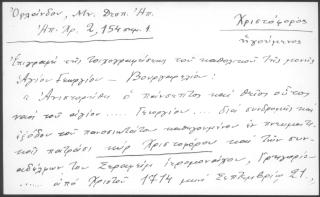 Ὀρλάνδου, Μν. Δεσπ. Ἠπ.
Ἠπ. Χρ. 2, 154 σημ. 1
Χριστόφορος
ἡγούμενος
Ἐπιγραφὴ τῆς τοιχογραφήσεως τοῦ καθολικοῦ τῆς μονῆς
Ἁγίου Γεωργίου - Βουργαρελίου:
"Ἀνιστορήθη ὁ πάνσεπτος καὶ θεῖος οὗτος
ναὸς τοῦ ἁγίου ..... Γεωργίου .... διὰ συνδρομῆς καὶ
ἐξόδου τοῦ πανοσιωτάτου καθηγουμένου ἐν πνευματι-
κοῖς πατράσι κὺρ Χριστοφόρου καὶ τῶν συνα-
δέλφων του Σεραφεὶμ ἱερομονάχου, Γρηγορίου
..... ἀπὸ Χριστοῦ 1714 μηνὶ Σεπτεμβρίῳ 21.,